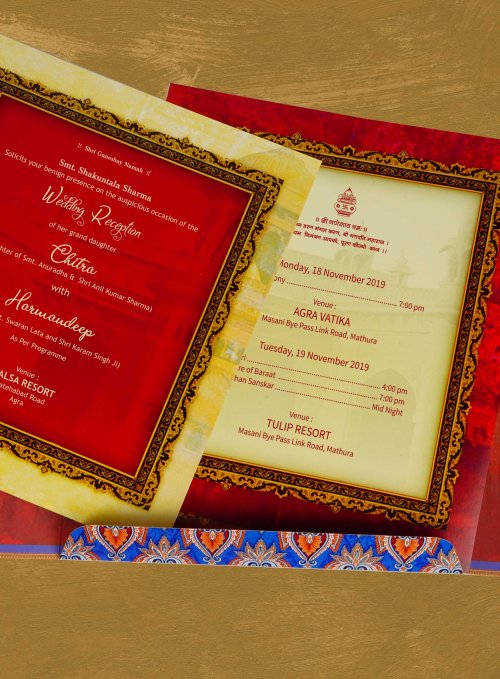 ॥ Shri Ganeshay Namah ॥
Smt. Shakuntala Sharma
Solicits your benign presence on the auspicious occasion of the
Wedding Reception
of her grand daughter
Chitra
ter of Smt. Anuradha & Shri Anil Kumar Sharma)
with
Harmandeep
t. Swaran Lata and Shri Karam Singh Ji)
As Per Programme
Venue :
ALSA RESORT
atehabad Road
Agra
॥ श्री गणेशाय नमः ॥
हरण मंगल करण, श्री गणपति महाराज ।
निमंत्रण आपको, पूरण कीज्यो काज ॥
Monday, 18 November 2019
ony 7:00 pm
Venue :
AGRA VATIKA
Masani Bye Pass Link Road, Mathura
Tuesday, 19 November 2019
4:00 pm
re of Baraat 7:00 pm
han Sanskar Mid Night
Venue :
TULIP RESORT
Masani Bye Pass Link Road, Mathura